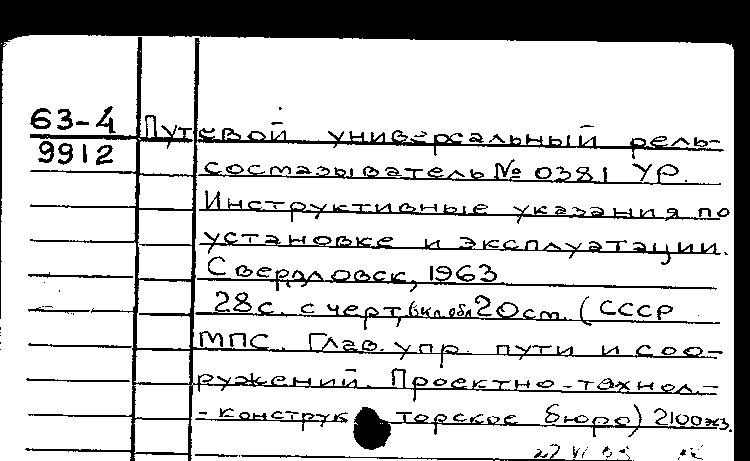 63-4 Путевой универсальный рель-
9912 сосмазыватель № 0381 УР.
Инструктивные указания по
установке и эксплуатации.
Свердловск, 1963.
28с. с черт, вкл. обл 20см. (СССР
МПС. Глав. упр. пути и соо-
ружений. Проектно-технол.-
-конструкторское бюро) 2100экз.